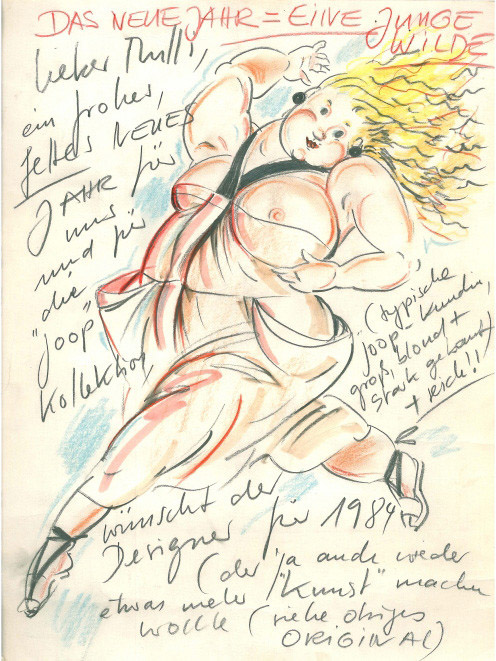 DAS NEUE JAHR = EINE JUNGE
WILDE
lieber Thilli,
ein froher,
fettes NEUES
JAHR für
uns
und für
die
"joop"
Kollektion,
(typische
joop-Kundin,
groß, blond +
stark gebaut
+ reich!!)
wünscht der
Designer für 1984
(der ja auch wieder
etwas mehr "Kunst" machen
wollte (siehe obiges
ORIGINAL)